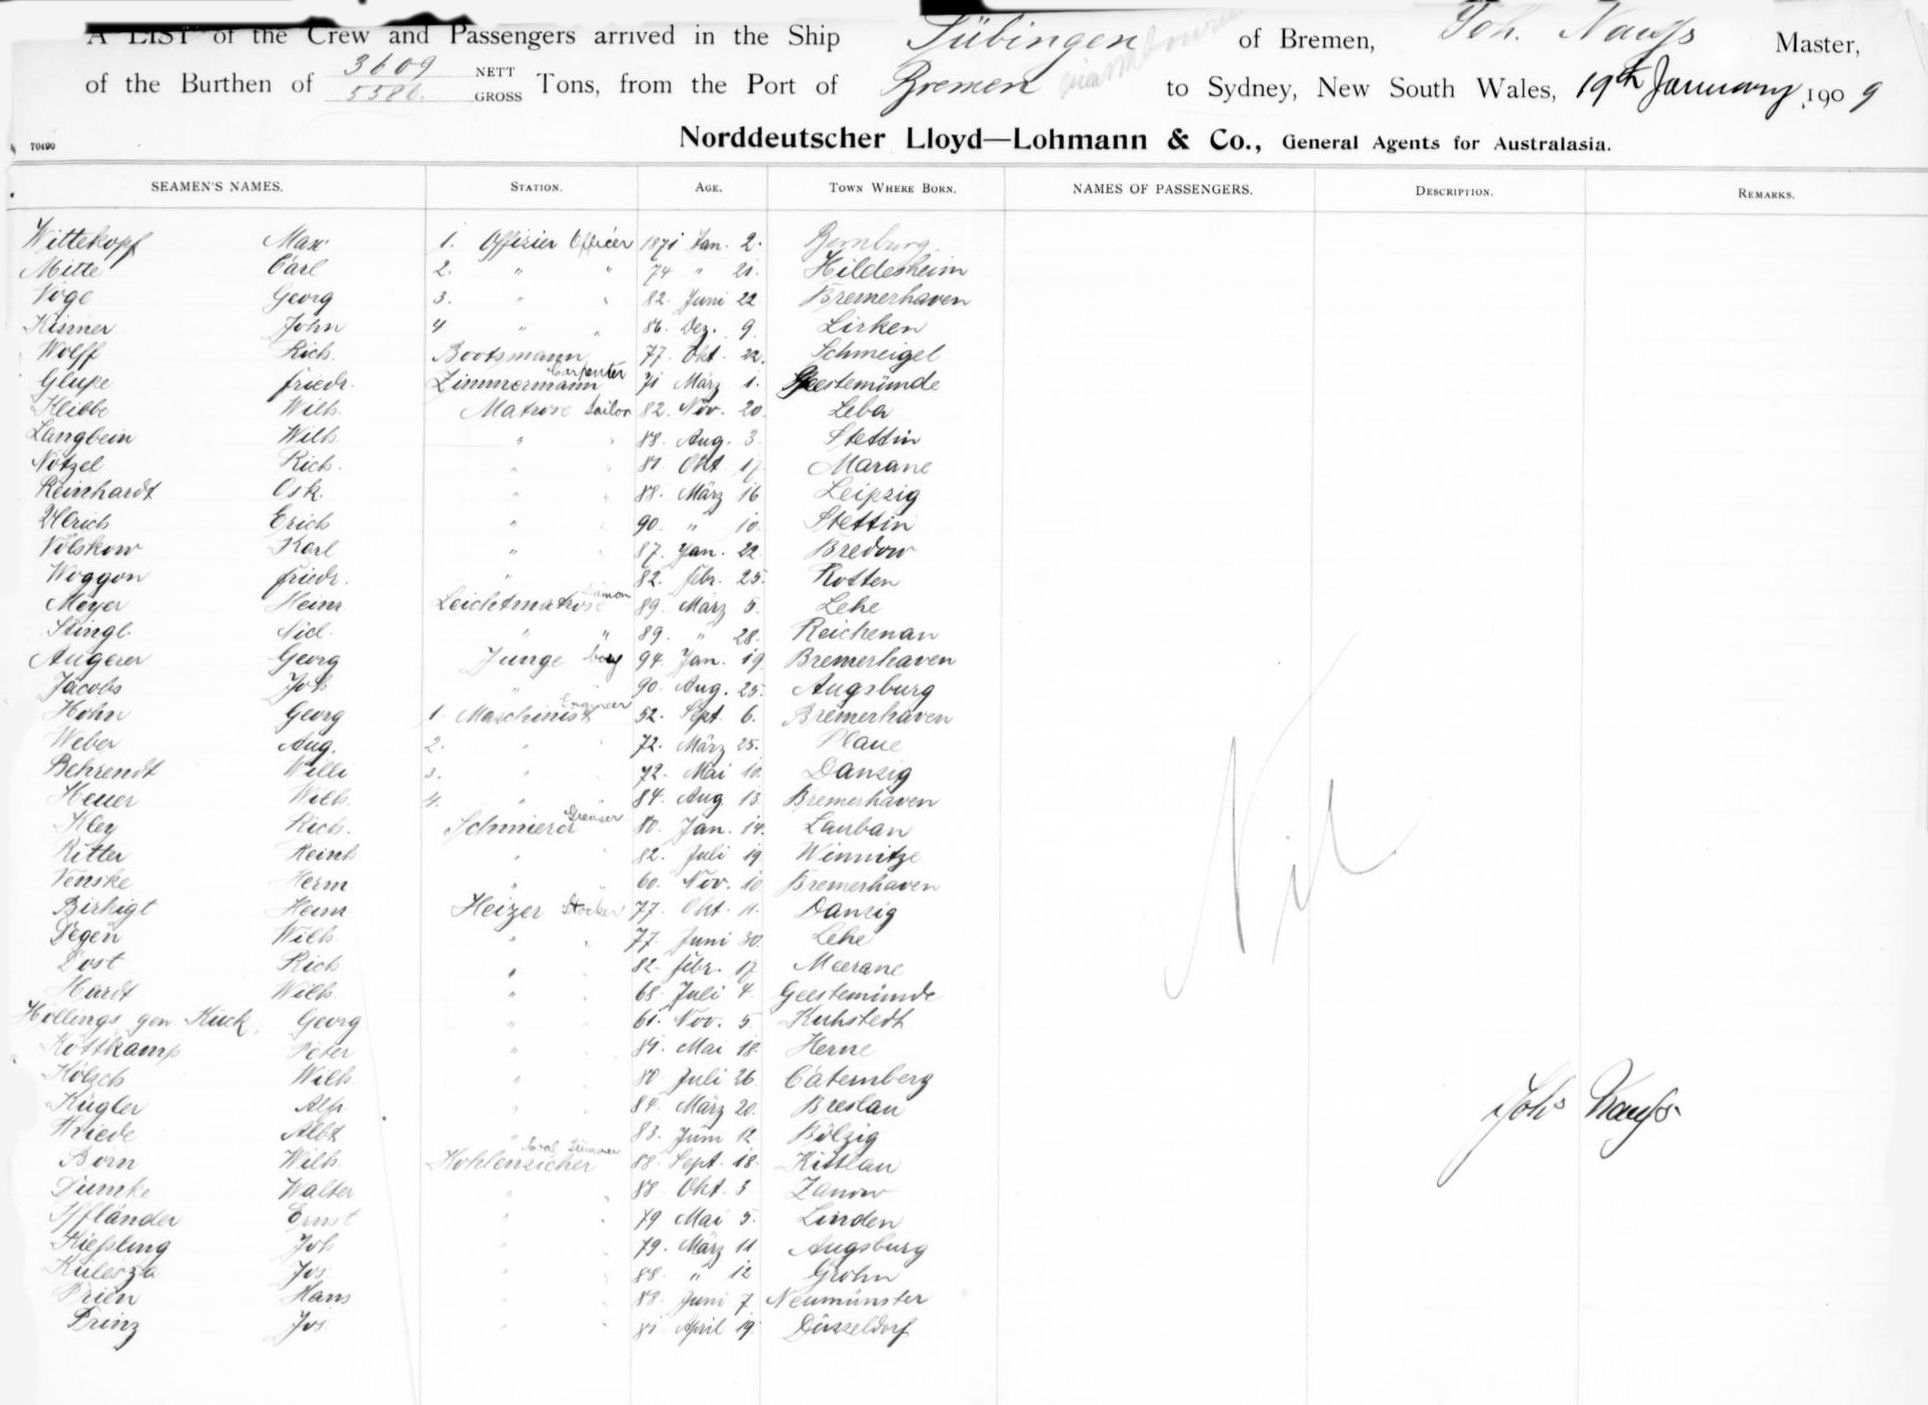 A LIST of the Crew and Passengers arrived in the Ship Tübingen of Bremen, Joh. Nauss Master,
of the Burthen of 3609 NETT 5586. GROSS Tons, from the Port of Bremen via to Sydney, New South Wales, 19th January 1909
Norddeutscher Lloyd—Lohmann & Co., General Agents for Australasia.
70490
SEAMEN'S NAMES. STATION. AGE. TOWN WHERE BORN. NAMES OF PASSENGERS. DESCRIPTION. REMARKS.
Wittekopf Max 1. Offizier Officer 1871 Jan. 2. Bernburg.
Mitte Carl 2. " " 74 " 21. Hildesheim
Voge Georg 3. " " 82. Juni 22 Bremerhaven
John 4 " " 86. Dez. 9. Lirken
Wolff Rich. Bootsmann 77. Okt. 22. Schmeigel
Glupe Friedr. Zimmermann Carpenter 71 März 1. Geestemünde
Klibbe Wilh. Matrose Sailor 82. Nov. 20. Leba
Langbein Wilh. " " 88. Aug. 3. Stettin
Nötzel Rich. " " 81. Okt. 17. Marane
Reinhardt Osk. " " 88. März 16 Leipzig
Ulrich Erich " 90. " 10. Stettin
Völskow Karl " 87. Jan. 22. Bredow
Woggon Friedr. " 82. Febr. 25. Rotten
Meyer Heinr Leichtmatrose 89. März 5. Lehe
Stingl Nicl. " " 89. " 28. Reichenau
Augerer Georg Junge boy 94. Jan. 19. Bremerhaven
Jacobs Joh " 90. Aug. 25. Augsburg
Hohn Georg 1. Maschinist Engineer 52. Sept. 6. Bremerhaven
Weber Aug. 2. " 72. März 25. Plaue
Behrendt Willi 3. " 72. Mai 10. Danzig
Heuer Wilh. 4. " 84. Aug. 13. Bremerhaven
Kley Rich. Schmierer Greaser 80. Jan. 14. Lauban
Ritter Reinh " 82. Juli 19 Winnitze
Venske Herm " 60. Nov. 10. Bremerhaven
Birkigt Heinr Heizer Stoker 77. Okt. 11. Danzig
Degen Wilh " 77. Juni 30. Lehe
Dost Rich " 82. Febr. 17 Meerane
Hardt Wilh. " 68. Juli 4. Geestemünde
Höllings gen. Kück, Georg " 61. Nov. 5 Kuhstedt
Köttkamp Peter " 81. Mai 18. Herne
Kölsch Wilh. " 80. Juli 26. Caternberg
Kügler Alfr. " 84. März 20. Breslau
Albt " 83. Juni 12. Bölzig
Born Wilh Kohlenzieher Coal Trimmer 88. Sept. 18. Kittlau
Dumke Walter " 88. Okt. 3 Zanow
Iffländer Ernst " 79 Mai 5. Linden
Kießling Joh " 79. März 11 Augsburg
Kulesza Jos " 88. " 12 Grohn
Prien Hans " 88. Juni 7. Neumünster
Prinz Jos " 81. April 19. Düsseldorf
Nil
Johs Nauss